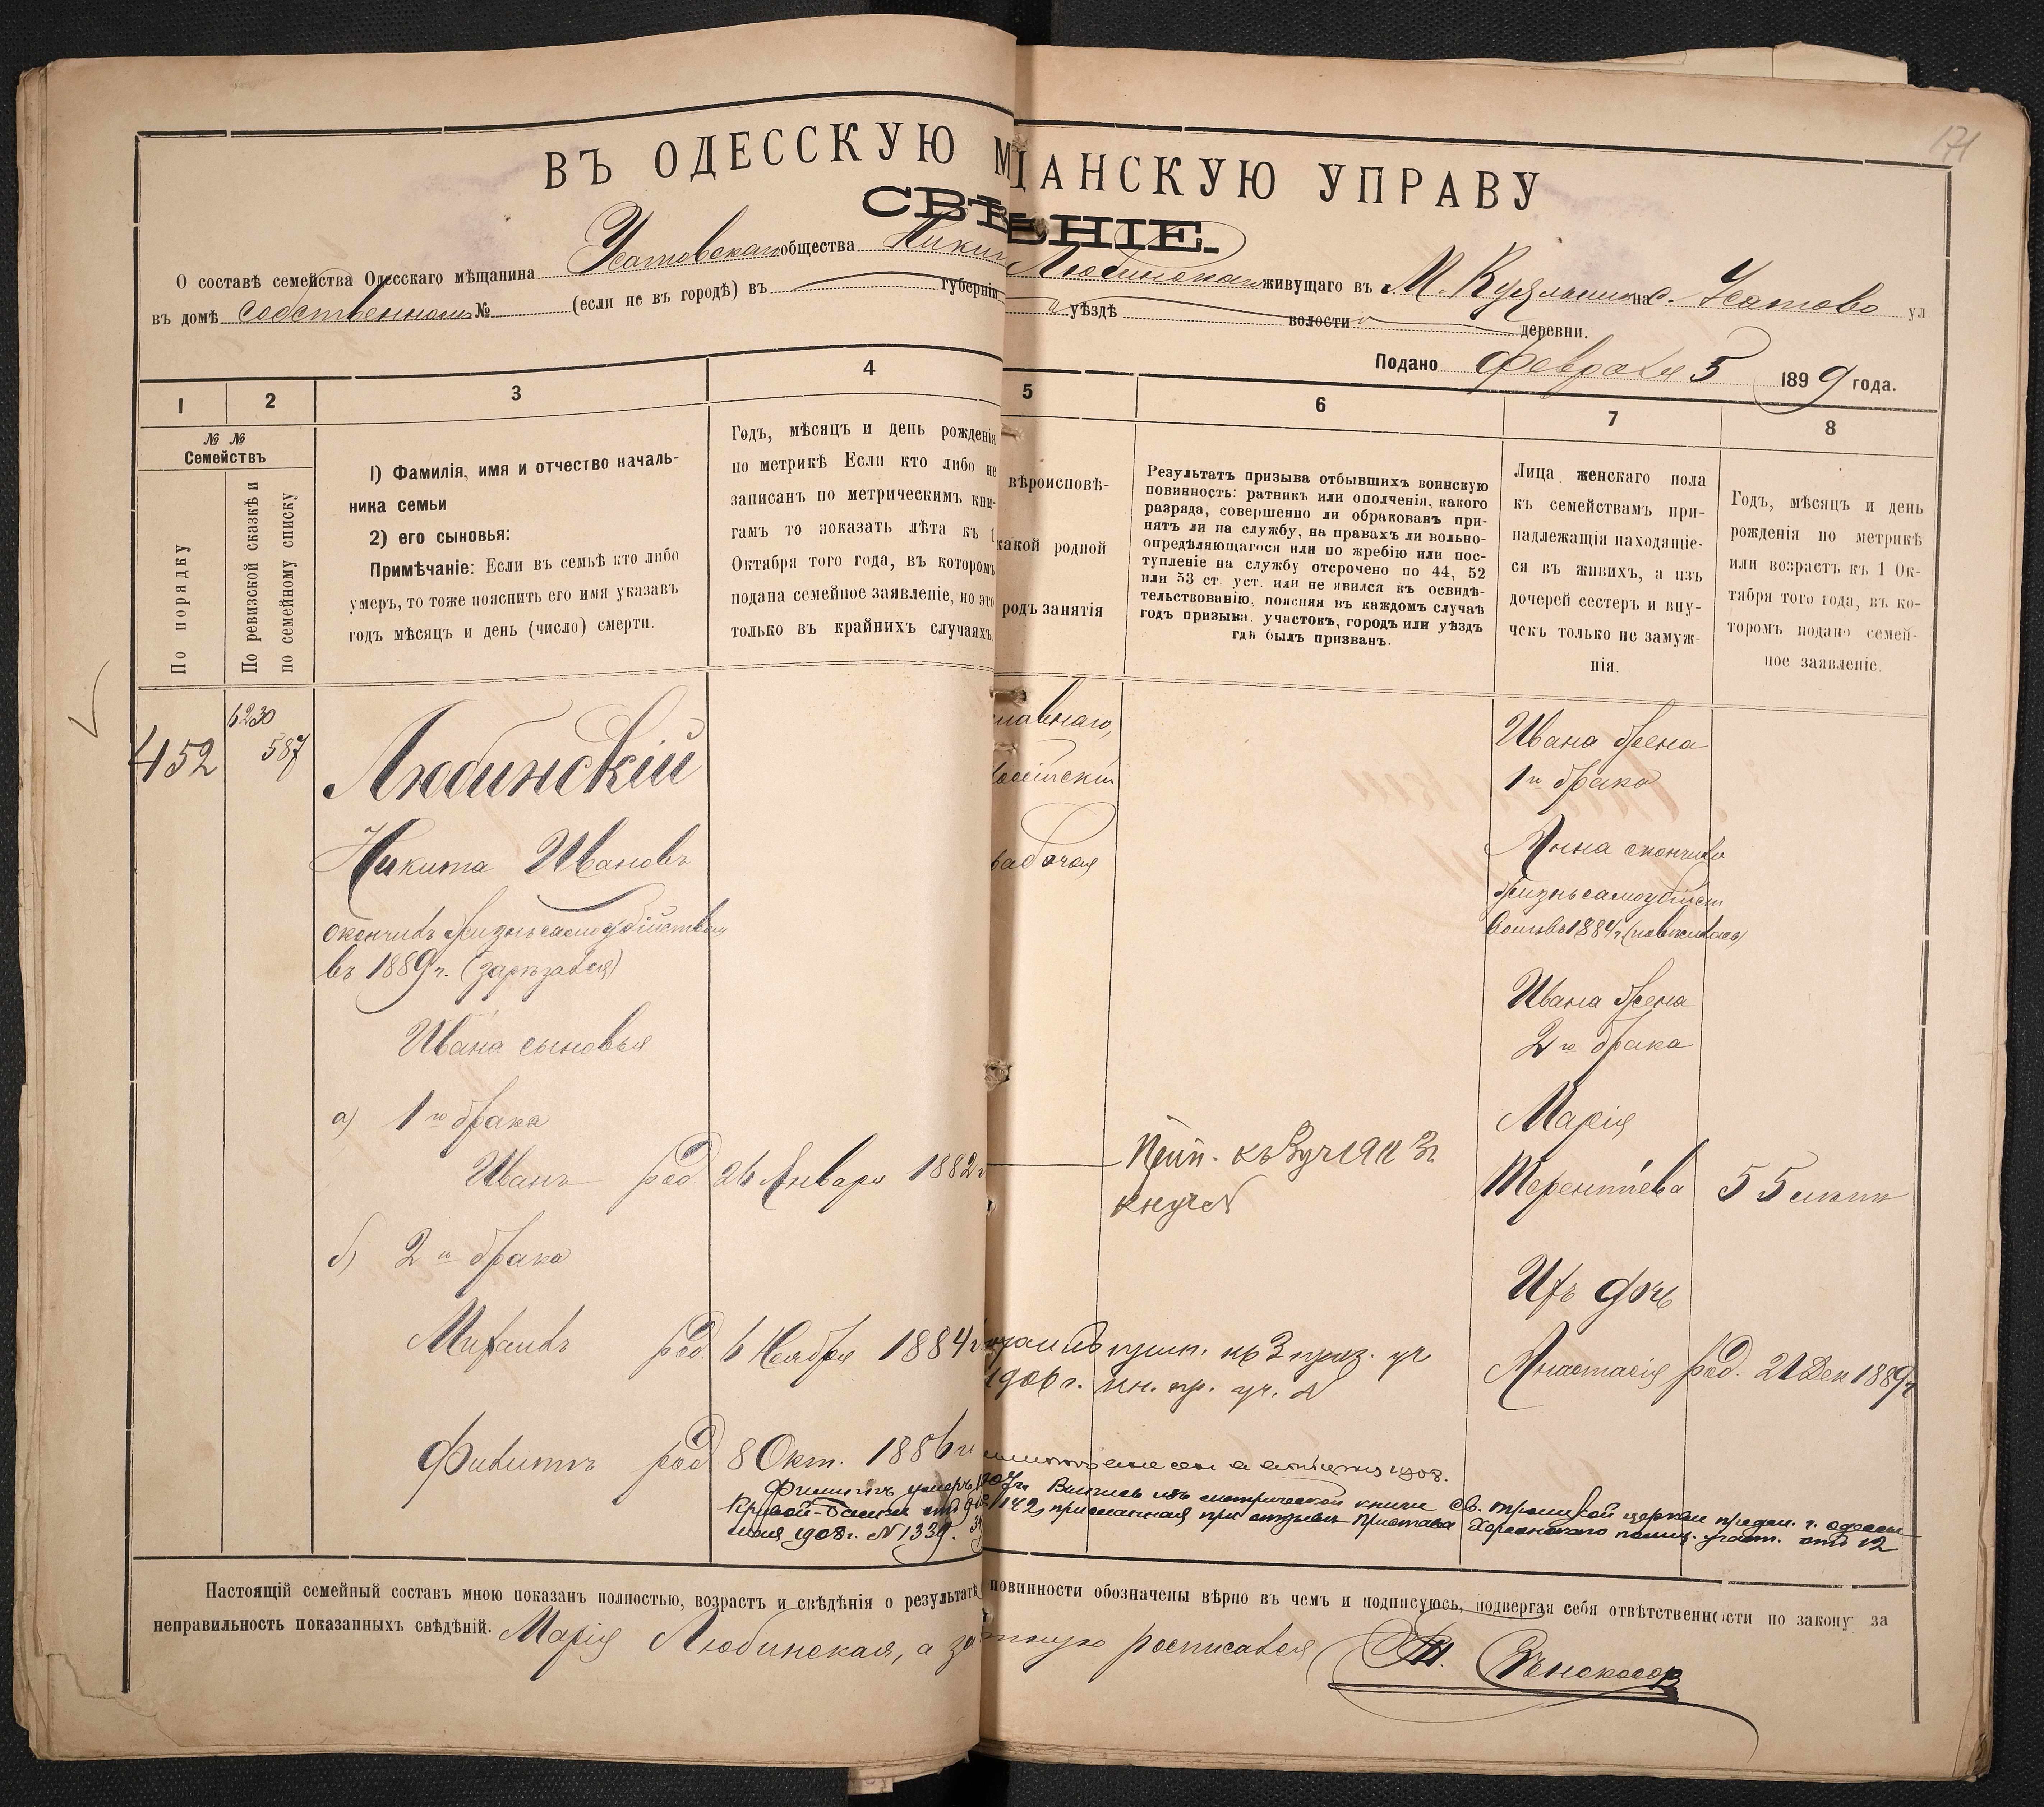 171
ВЪ ОДЕССКУЮ МѢЩАНСКУЮ УПРАВУ
СВѢДѢНІЕ.
О составѣ семейства Одесскаго мѣщанина Усатовскаго общества Никиты Любинскаго живущаго въ М. Куяльникѣ с. Усатово ул
въ домѣ собственномъ № (если не въ городѣ) въ губерніи уѣздѣ волости деревни.
Подано февраля 5 1899 года.
1 2 3 4 5 6 7 8
№ №
Семействъ
По порядку
По ревизской сказкѣ и
по семейному списку
1) Фамилія, имя и отчество началь-
ника семьи
2) его сыновья:
Примѣчаніе: Если въ семьѣ кто либо
умеръ, то тоже пояснить его имя указавъ
годъ мѣсяцъ и день (число) смерти.
Годъ, мѣсяцъ и день рожденія
по метрикѣ Если кто либо не
записанъ по метрическимъ кни-
гамъ то показать лѣта къ 1
Октября того года, въ которомъ
подана семейное заявленіе, но это
только въ крайнихъ случаяхъ
вѣроисповѣ-
какой родной
родъ занятія
Результатъ призыва отбывшихъ воинскую
повинность: ратникъ или ополченія, какого
разряда, совершенно ли обракованъ при-
нятъ ли на службу, на правахъ ли вольно-
опредѣляющагося или по жребію или пос-
тупленіе на службу отсрочено по 44, 52
или 53 ст. уст. или не явился къ освидѣ-
тельствованію, поясняя въ каждомъ случаѣ
годъ призыва, участокъ, городъ или уѣздъ
гдѣ былъ призванъ.
Лица женскаго пола
къ семействамъ при-
надлежащія находящіе-
ся въ живихъ, а изъ
дочерей сестеръ и вну-
чекъ только не замуж-
нія.
Годъ, мѣсяцъ и день
рожденія по метрикѣ
или возрастъ къ 1 Ок-
тября того года, въ ко-
торомъ подано семей-
ное заявленіе.
452
6230
587
Любинскій
Никита Ивановъ
окончилъ жизнь самоубійствомъ
въ 1889 г. (зарѣзался)
Ивана сыновья
а) 1го брака
Иванъ род. 26 Января 1882 г
б) 2го брака
Михаилъ род. 6 Ноября 1884 г
Филиппъ род 8 Окт. 1886 г
славнаго,
россійскій
рабочая
Прип. къ 3 уч 1903 г
1906 г. ин. пр. уч. №
Филиппъ умеръ 1907 г. Выпись изъ метрической книги Св. Троицкой церкви предм. г. Одессы
Кривой-Балки присланная при отзывѣ Пристава Херсонскаго полиц. участ. отъ 12
1908 г. № 1339.
Ивана жена
1го брака
Анна окончила
жизнь самоубійст
вомъ въ 1884 г. (повѣсилась)
Ивана жена
2го брака
Марія
Терентіева 55 лѣтъ
Ихъ дочь
Анастасія род. 21 Дек 1889 г
Настоящій семейный составъ мною показанъ полностью, возрастъ и свѣдѣнія о результатѣ повинности обозначены вѣрно въ чемъ и подписуюсь, подвергая себя отвѣтственности по закону за
неправильность показанныхъ свѣдѣній. Марія Любинская, а за неграмотную росписался